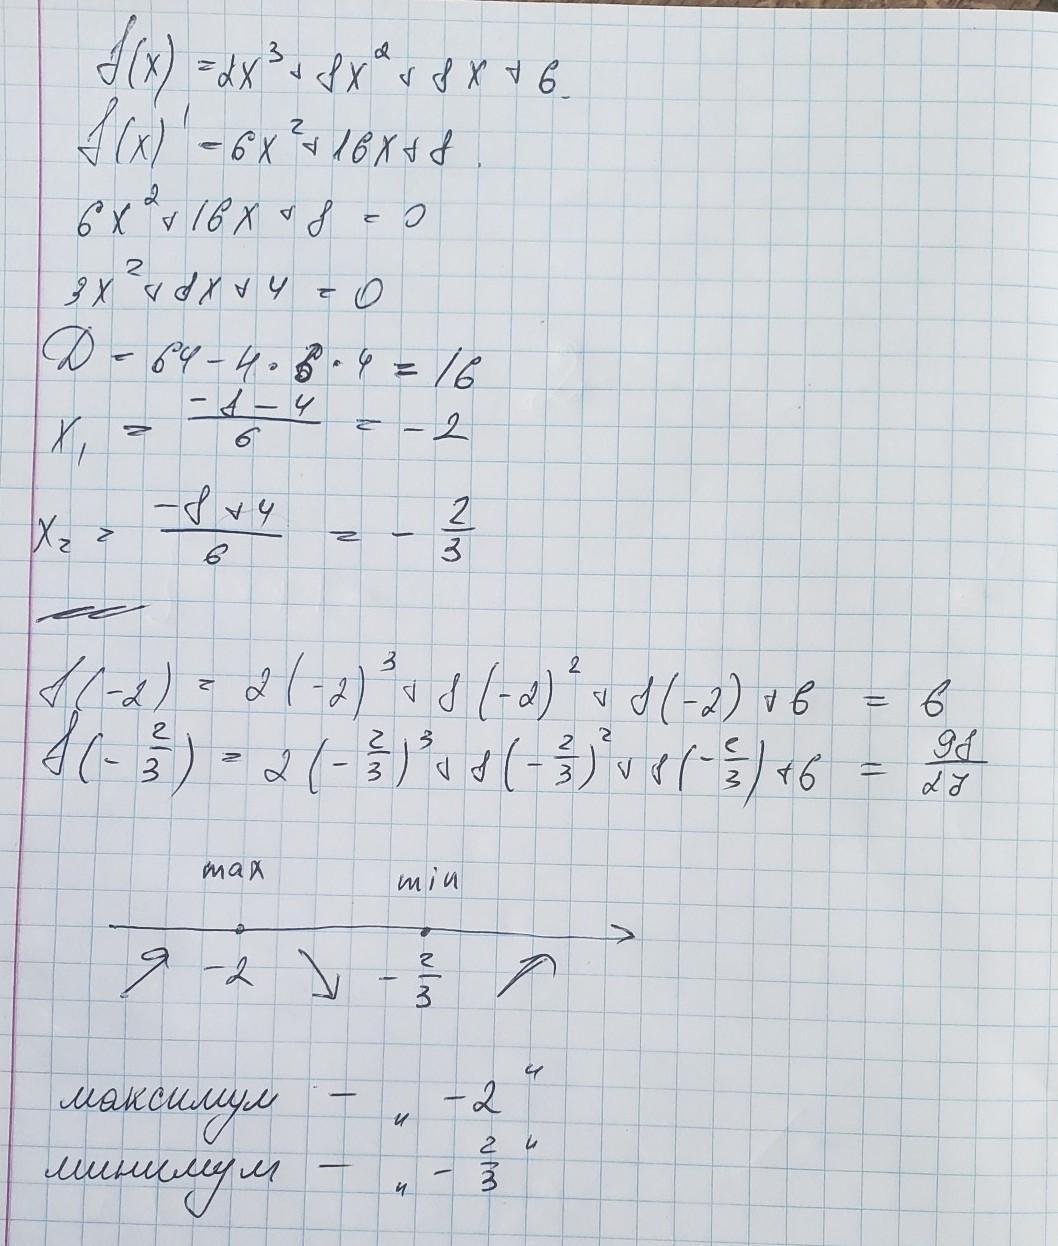 f(x) = 2x³ + 8x² + 8x + 6
f(x)' = 6x² + 16x + 8
6x² + 16x + 8 = 0
3x² + 8x + 4 = 0
D = 64 - 4 · 3 · 4 = 16
x₁ = (-8 - 4)/6 = -2
x₂ = (-8 + 4)/6 = - 2/3
f(-2) = 2(-2)³ + 8(-2)² + 8(-2) + 6 = 6
f(- 2/3) = 2(- 2/3)³ + 8(- 2/3)² + 8(- 2/3) + 6 = 98/27
max min
-2 - 2/3
максимум – „ -2 "
минимум – „ - 2/3 "